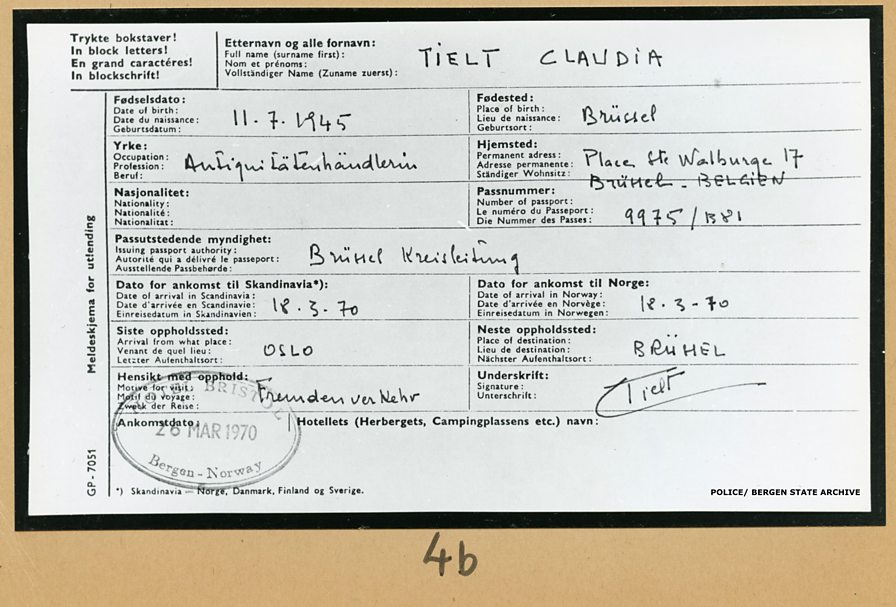 Trykte bokstaver!
In block letters!
En grand caractéres!
In blockschrift!
Etternavn og alle fornavn:
Full name (surname first):
Nom et prénoms:
Vollständiger Name (Zuname zuerst):
TIELT CLAUDIA
Fødselsdato:
Date of birth:
Date du naissance:
Geburtsdatum:
11.7.1945
Fødested:
Place of birth:
Lieu de naissance:
Geburtsort:
Brüssel
Yrke:
Occupation:
Profession:
Beruf:
Antiquitätenhändlerin
Hjemsted:
Permanent adress:
Adresse permanente:
Ständiger Wohnsitz:
Place Ste Walburge 17
Brüssel - BELGIEN
Nasjonalitet:
Nationality:
Nationalité:
Nationalitat:
Passnummer:
Number of passport:
Le numéro du Passeport:
Die Nummer des Passes:
9975/B81
Passutstedende myndighet:
Issuing passport authority:
Autorité qui a délivré le passeport:
Ausstellende Passbehørde:
Brüssel Kreisleitung
Dato for ankomst til Skandinavia*):
Date of arrival in Scandinavia:
Date d'arrivée en Scandinavie:
Einreisedatum in Skandinavien:
18.3.70
Dato for ankomst til Norge:
Date of arrival in Norway:
Date d'arrivée en Norvège:
Einreisedatum in Norwegen:
18.3-70
Siste oppholdssted:
Arrival from what place:
Venant de quel lieu:
Letzter Aufenthaltsort:
OSLO
Neste oppholdssted:
Place of destination:
Lieu de destination:
Nächster Aufenthaltsort:
BRÜSSEL
Hensikt med opphold:
Motive for visit:
Motif du voyage:
Zweck der Reise:
Fremdenverkehr
Underskrift:
Signature:
Unterschrift:
Tielt
Ankomstdato:
Hotellets (Herbergets, Campingplassens etc.) navn:
HOTEL BRISTOL
26 MAR 1970
Bergen - Norway
*) Skandinavia — Norge, Danmark, Finland og Sverige.
Meldeskjema for utlending
GP - 7051
POLICE/ BERGEN STATE ARCHIVE
4b